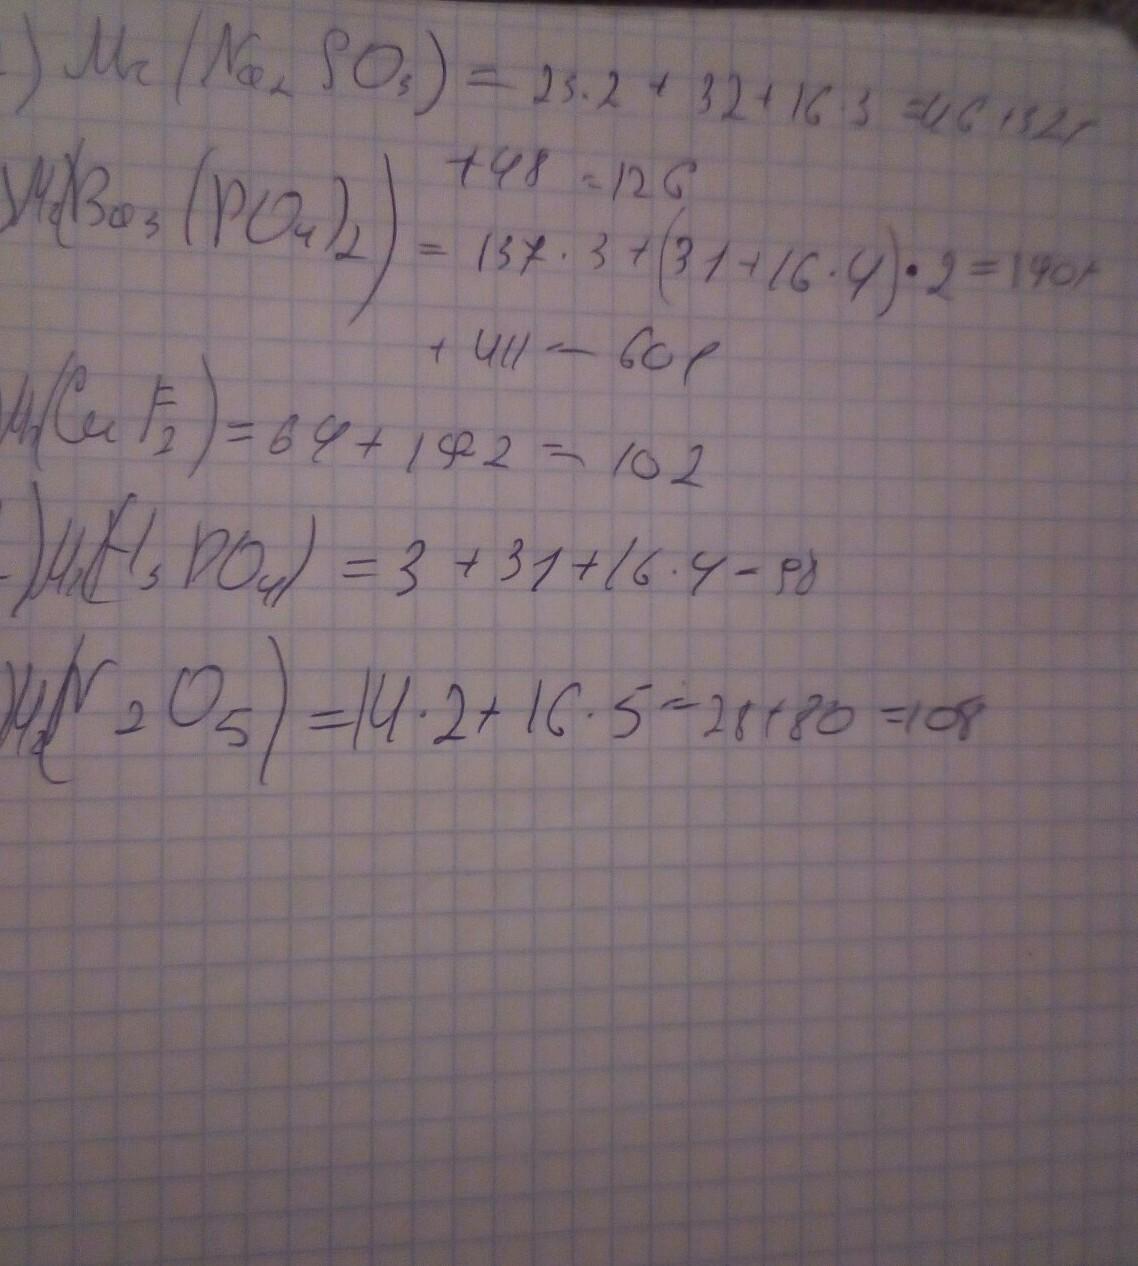 ) Mr(Na₂SO₃) = 23·2 + 32 + 16·3 = 46 + 32 +
+ 48 = 126
) Mr(Ba₃(PO₄)₂) = 137·3 + (31 + 16·4)·2 = 190 +
+ 411 = 601
Mr(CuF₂) = 64 + 19·2 = 102
) Mr(H₃PO₄) = 3 + 31 + 16·4 = 98
) Mr(N₂O₅) = 14·2 + 16·5 = 28 + 80 = 108